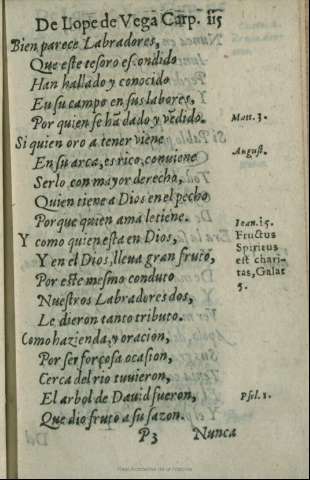 De Lope de Vega Carp. 115
Bien parece Labradores,
Que este tesoro escondido
Han hallado y conocido
En su campo en sus labores,
Por quien se hã dado y vẽdido.
Matt. 3.
Si quien oro a tener viene
En su arca, es rico, conuiene
August.
Serlo con mayor derecho,
Quien tiene a Dios en el pecho
Porque quien ama le tiene.
Y como quien esta en Dios,
Y en el Dios, lleua gran fruto,
Por este mesmo conduto
Nuestros Labradores dos,
Le dieron tanto tributo.
Ioan. 15.
Fructus
Spiritus
est chari-
tas, Galat
5.
Como hazienda, y oracion,
Por ser forçosa ocasion,
Cerca del rio tuuieron,
El arbol de Dauid fueron,
Psal. 1.
Que dio fruto a su sazon.
P3 Nunca